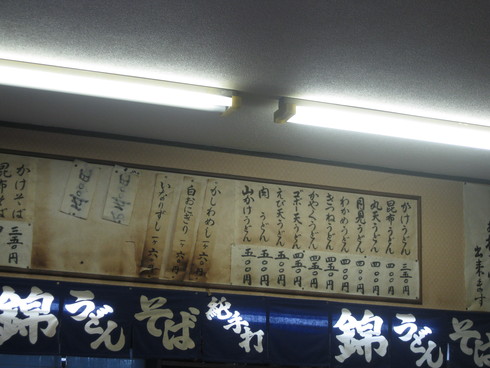 かけうどん 三五〇円
昆布うどん 四〇〇円
丸天うどん 四〇〇円
月見うどん 四〇〇円
わかめうどん 四〇〇円
きつねうどん 四五〇円
かやくうどん 四五〇円
ゴボー天うどん 四五〇円
えび天うどん 五〇〇円
肉うどん 五〇〇円
山かけうどん 五〇〇円
かしわめし 一六〇
白おにぎり 一六〇
いなりずし 一六〇
かけそば 三五〇円
昆布そば
出来ます
錦 うどん そば 純手打 錦 うどん そば